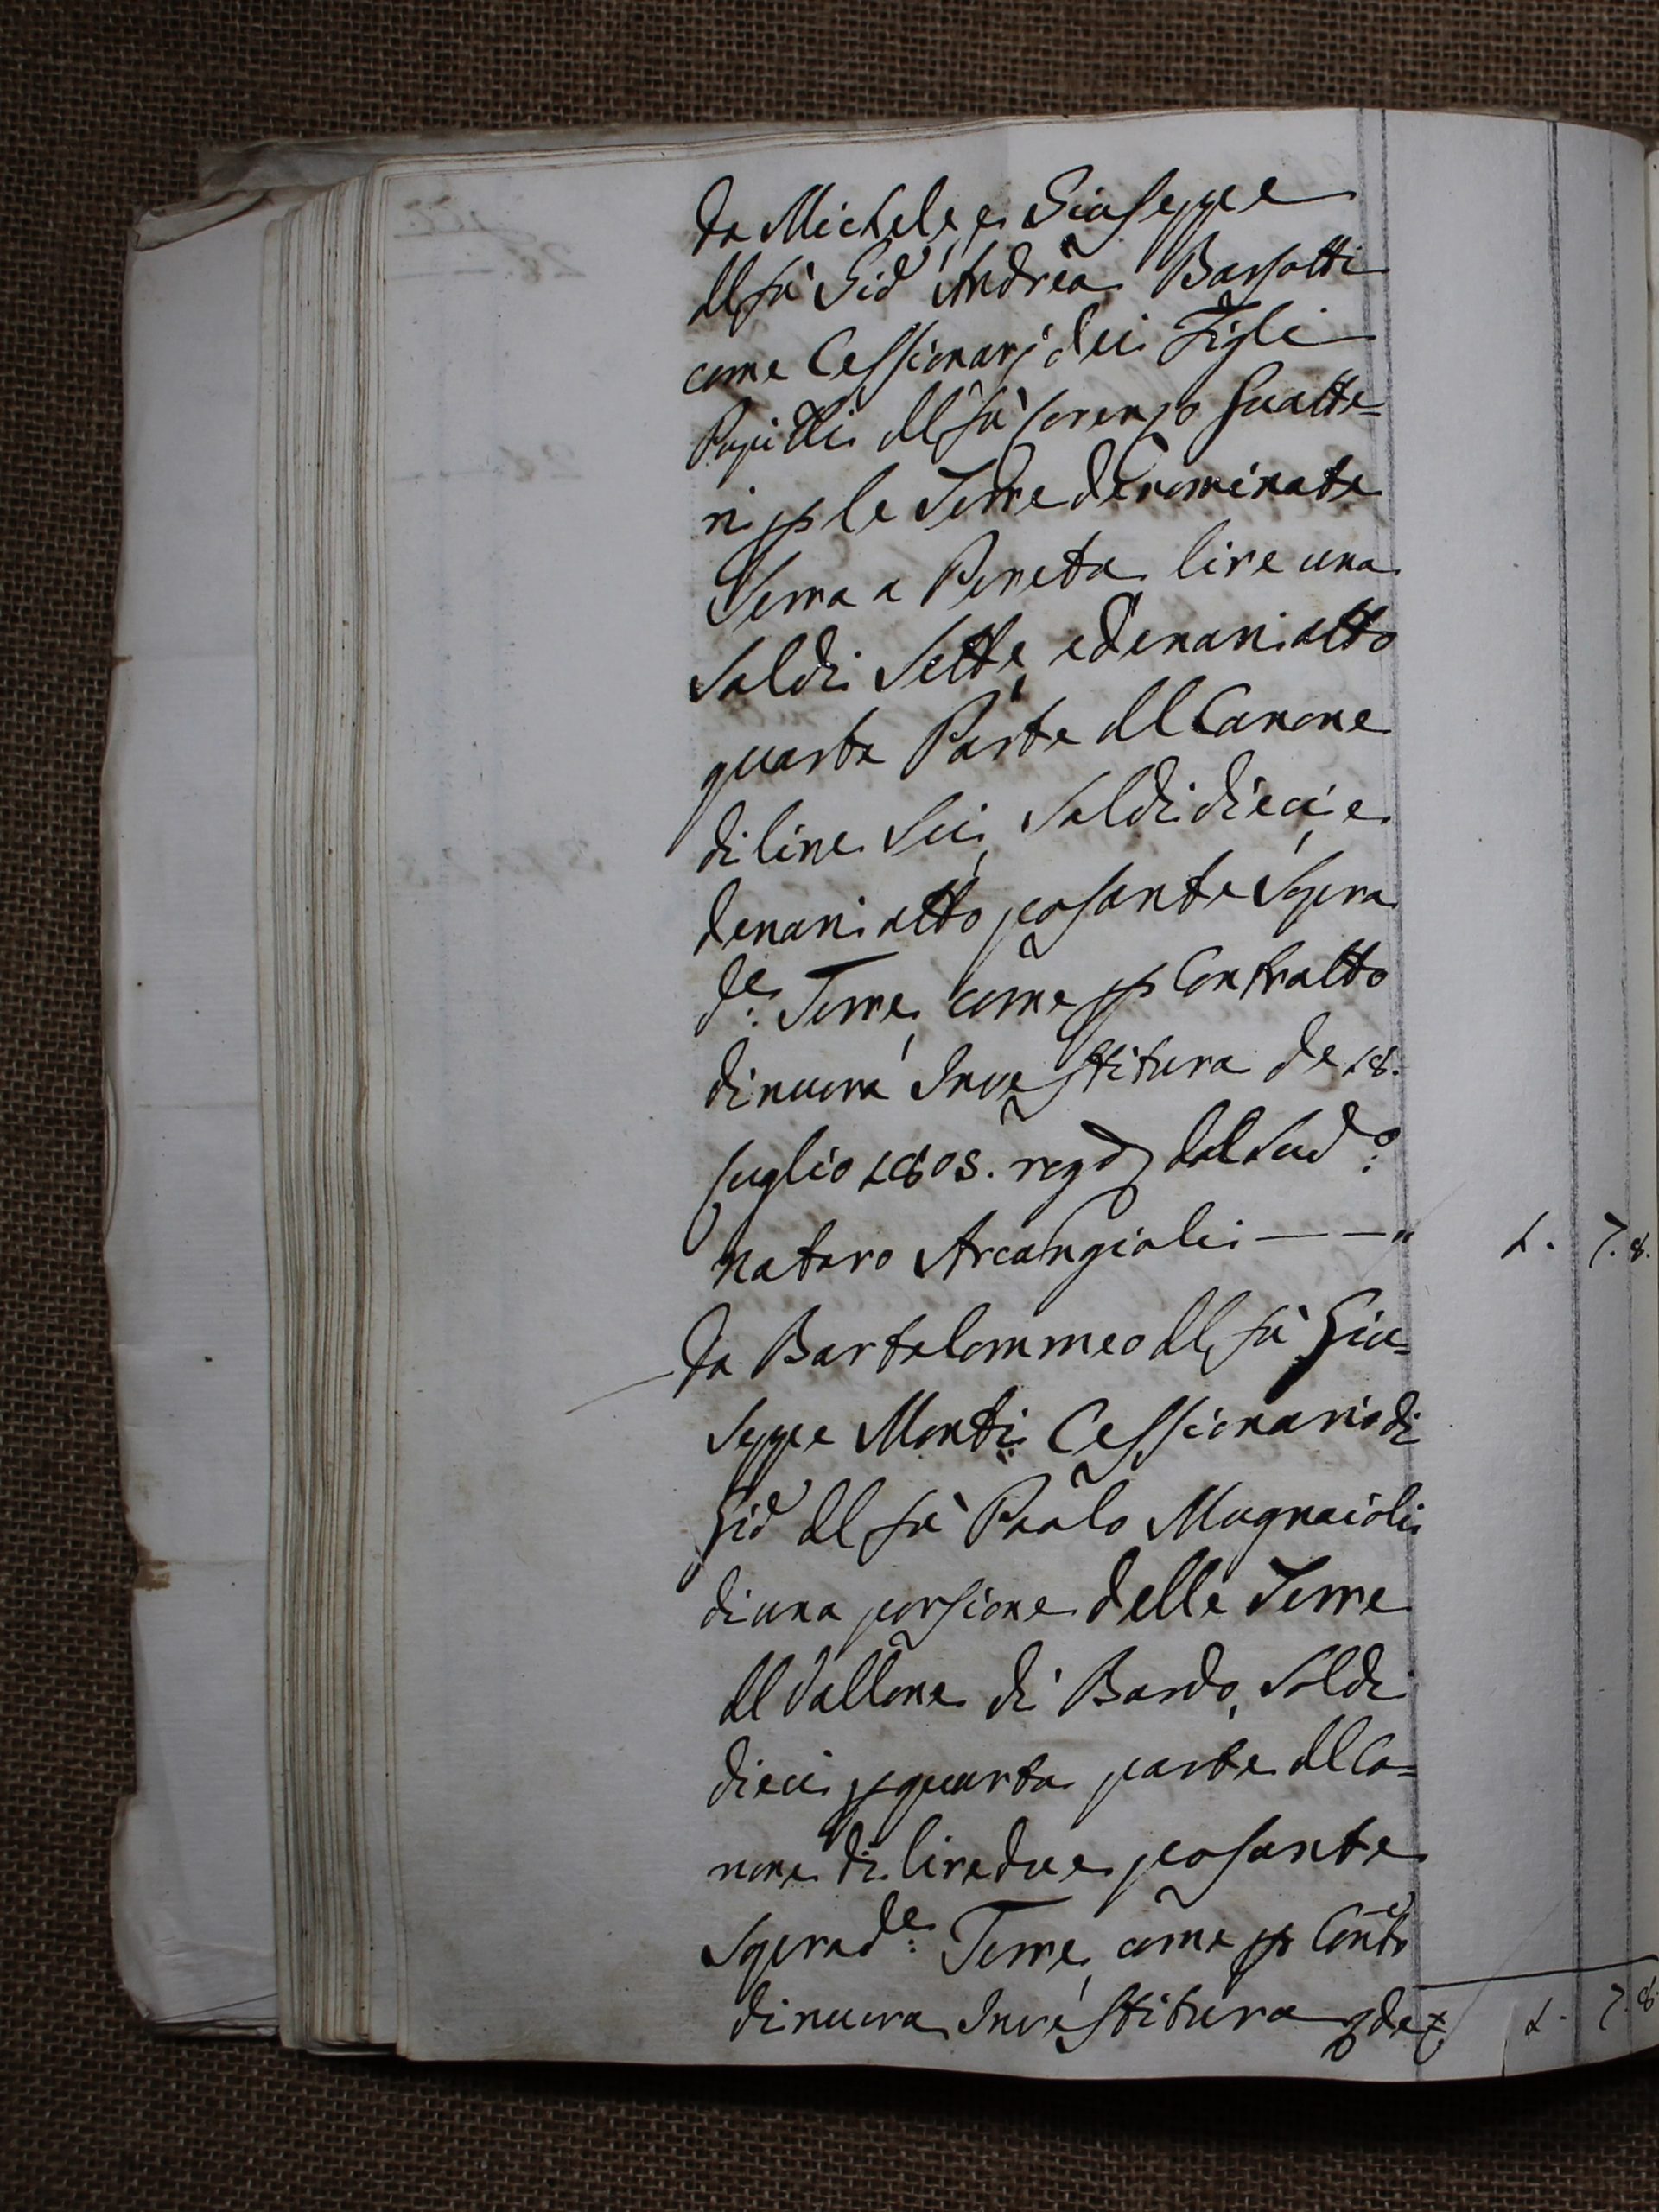 Da Michele, e Giuseppe
dl fù Gio' Andrea Bassotti
come Cessionarj dei Figli
Pupilli dl fù Lorenzo Gualte=
ri p le Terre denominate
Serra a Pereta lire una
Soldi Sette, e denari otto
quarta Parte dl Canone
di lire Sei, Soldi dieci, e
denari otto posante Sopra
de: Terre, come p Contratto
di nuova Investitura de 18.
Luglio 1805. rog. dal Sud.o
notaro Arcangioli — — " 1. 7. 8.
Da Bartolommeo dl fù Giu=
seppe Monti Cessionario di
Gio' dl fù Paolo Mugnaioli
di una porzione delle Terre
dl Vallone di Bardo, Soldi
dieci p quarta parte dl Ca=
none di lire due posante
Sopra de: Terre, come p Contto
di nuova Investitura de 1. 7. 8.